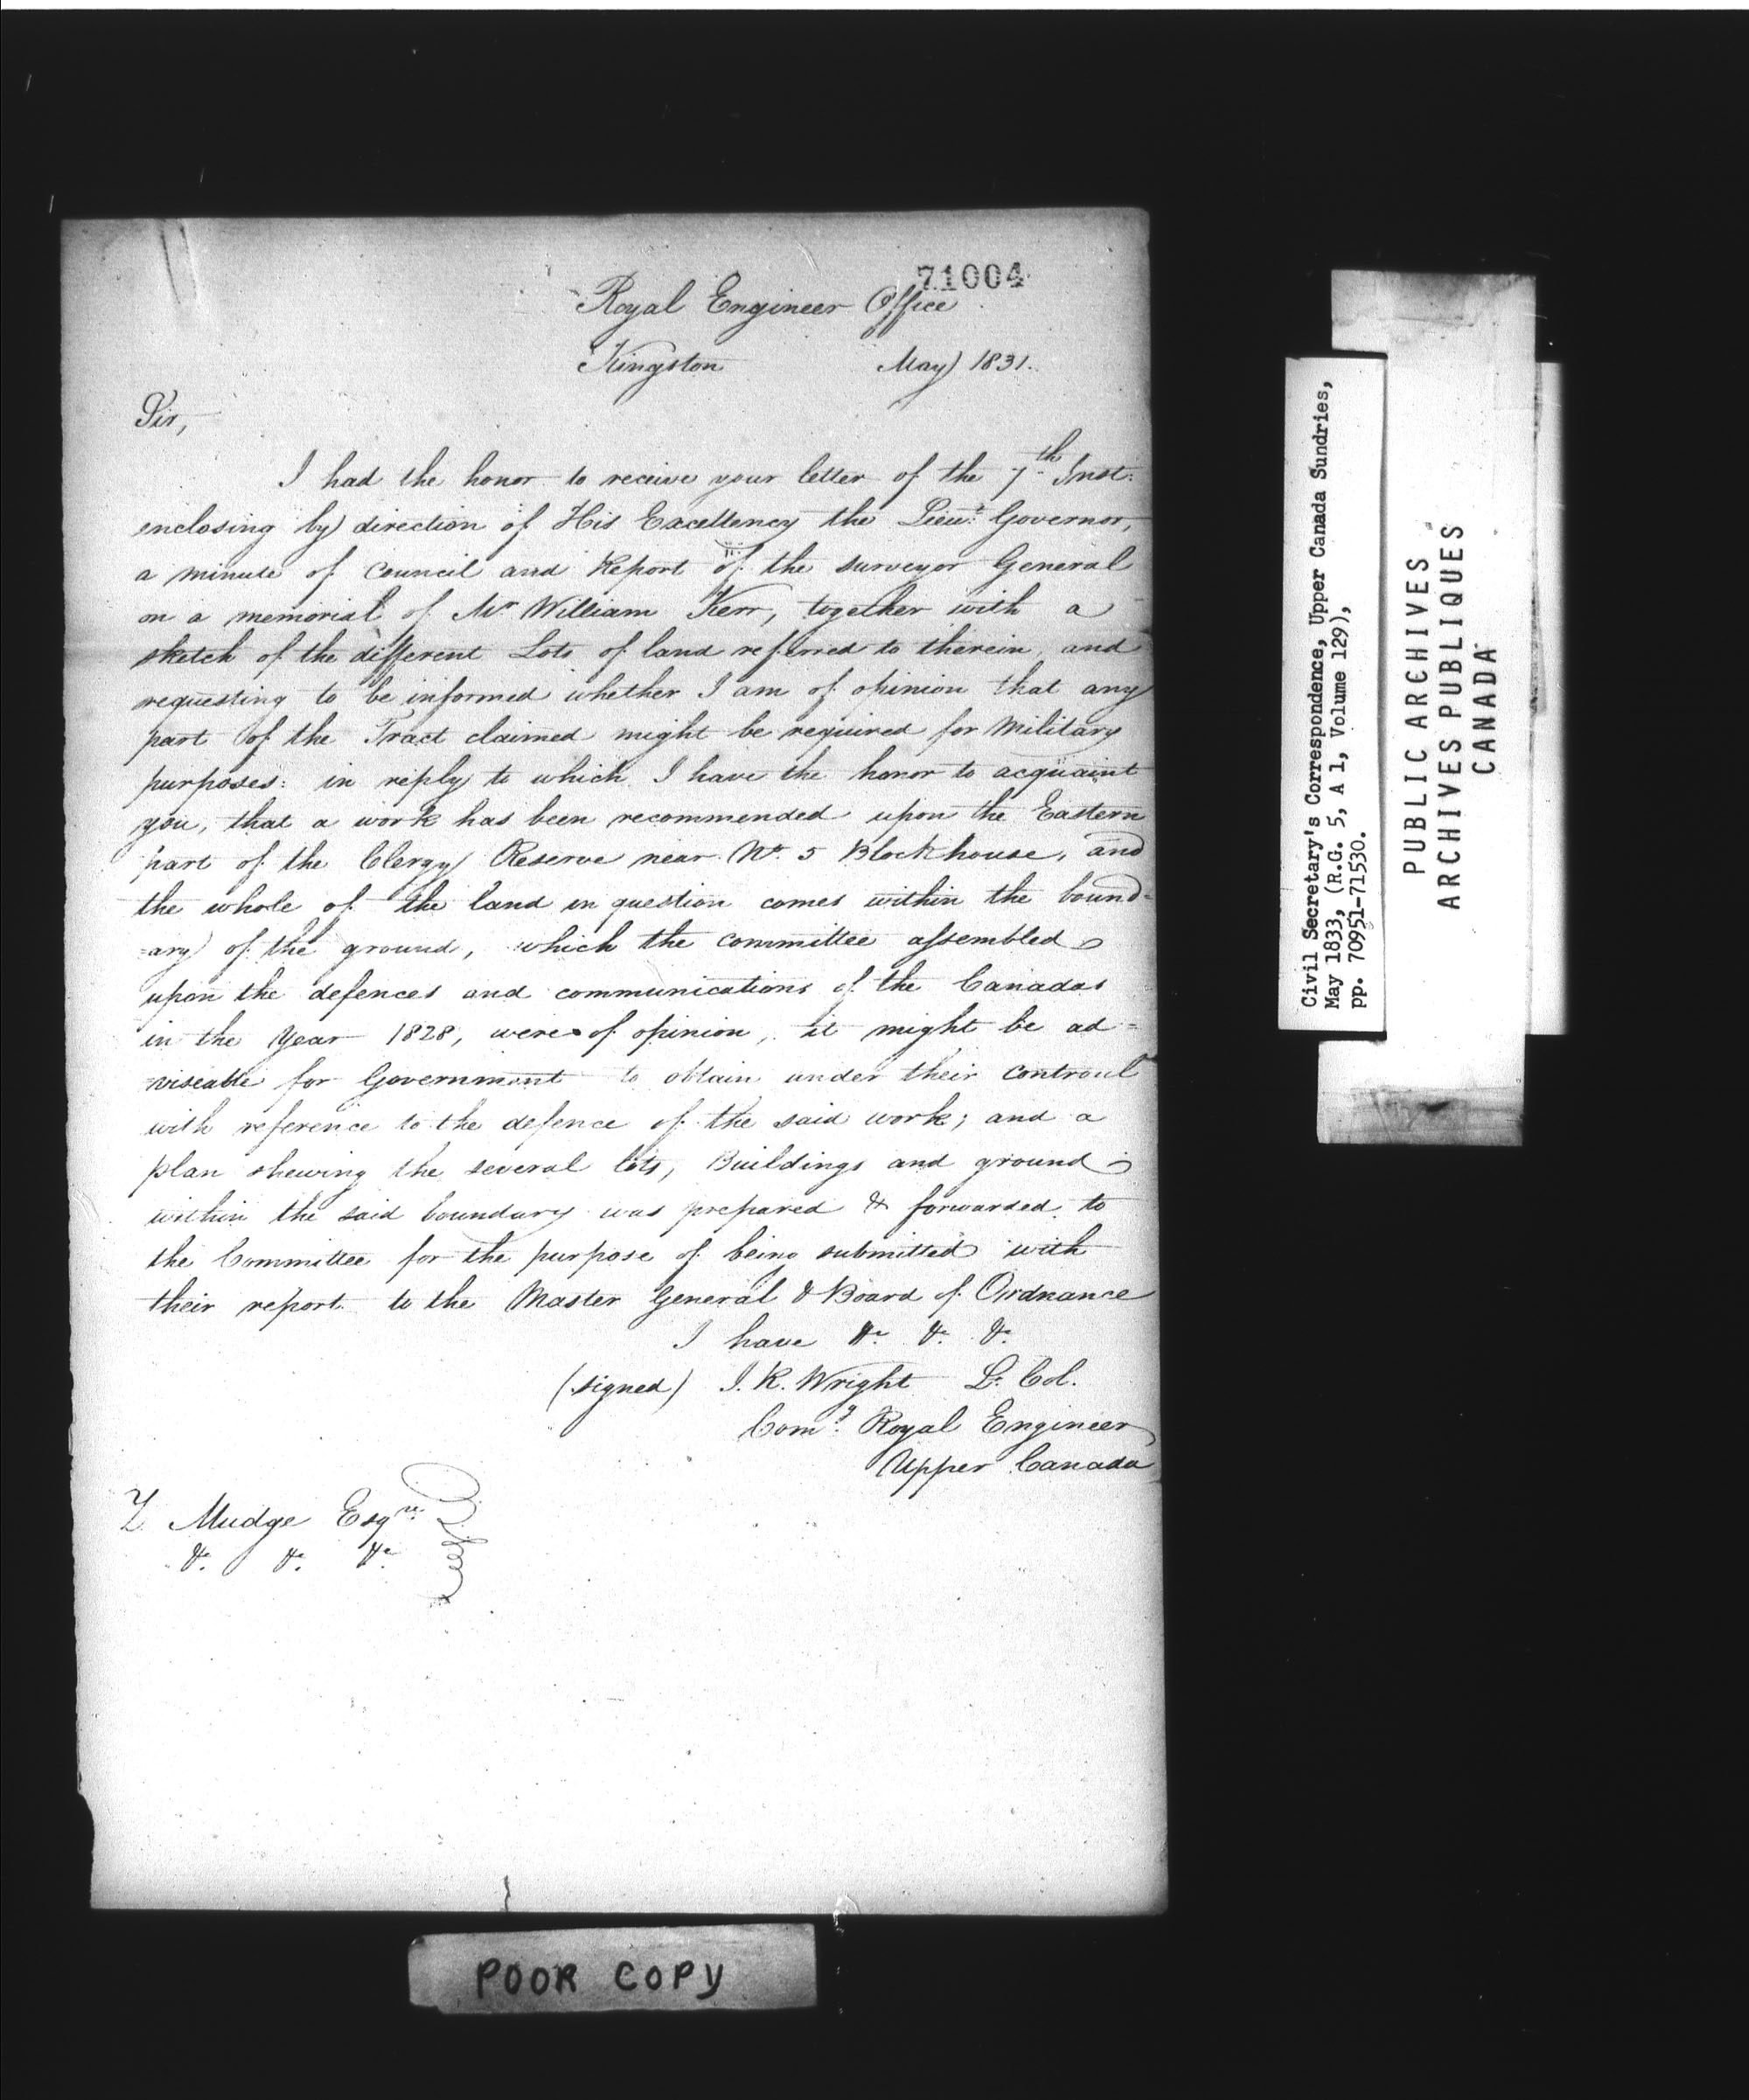 71004
Royal Engineer Office
Kingston May 1831.
Sir,
I had the honor to receive your letter of the 7th Inst:
enclosing by direction of His Excellency the Lieut. Governor,
a minute of Council and Report of the Surveyor General
on a memorial of Mr William Kerr, together with a
sketch of the different Lots of land referred to therein, and
requesting to be informed whether I am of opinion that any
part of the Tract claimed might be required for Military
purposes: in reply to which I have the honor to acquaint
you, that a work has been recommended upon the Eastern
part of the Clergy Reserve near No. 5 Blockhouse, and
the whole of the land in question comes within the bound=
=ary of the ground, which the committee assembled
upon the defences and communications of the Canadas
in the Year 1828, were of opinion, it might be ad=
viseable for Government to obtain under their controul
with reference to the defence of the said work; and a
plan shewing the several lots, Buildings and ground
within the said boundary was prepared & forwarded to
the Committee for the purpose of being submitted with
their report to the Master General & Board of Ordnance
I have &c. &c. &c.
(signed) I. R. Wright Lt. Col.
Comg. Royal Engineer
Upper Canada
Z. Mudge Esqre.
&c. &c. &c.
POOR COPY
Civil Secretary's Correspondence, Upper Canada Sundries,
May 1833, (R.G. 5, A 1, Volume 129),
pp. 70951-71530.
PUBLIC ARCHIVES
ARCHIVES PUBLIQUES
CANADA